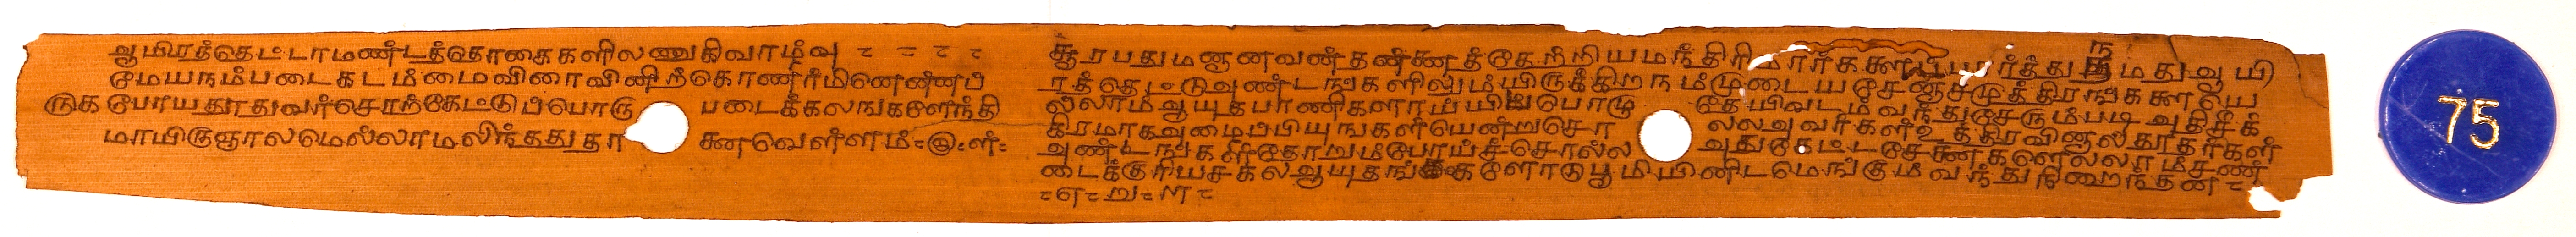 ஆயிரத்தெட்டாமண்டத்தொகைகளிலணுகிவாழ்வு
மேயநம்படைகடம்மைவிரைவினிற்கொணர்மினென்னப்
போயதூதுவர்சொற்கேட்டுப்பொரு படைக்கலங்களேந்தி
மாயிருஞாலமெல்லாமலிந்தது தானவெள்ளம்
சூரபதுமனானவன்தன்னத்தேற்றியமந்திரிமார்களை பார்த்து நமது ஆயி
ரத்தெட்டுஅண்டங்களிலும்யிருக்கிற நம்முடையசேனாசமுத்திரங்களையெ
ல்லாம்ஆயுதபாணிகளாய் பொரு தேயிவடம்வந்துசேரும்படி அதிசீக்
கிரமாகஅழைப்பியுங்கள்யென்றுசொ ல்லஅவர்கள்உத்திரவினால்தூதர்கள்
அண்டங்கள்தோறும்போய்ச்சொல்ல அதுகேட்டசேனைகளெல்லாம்சண்
டைக்குரியசகலஆயுதங்களோடுபூமியினிடமெங்கும்வந்துநிறைந்தன
75